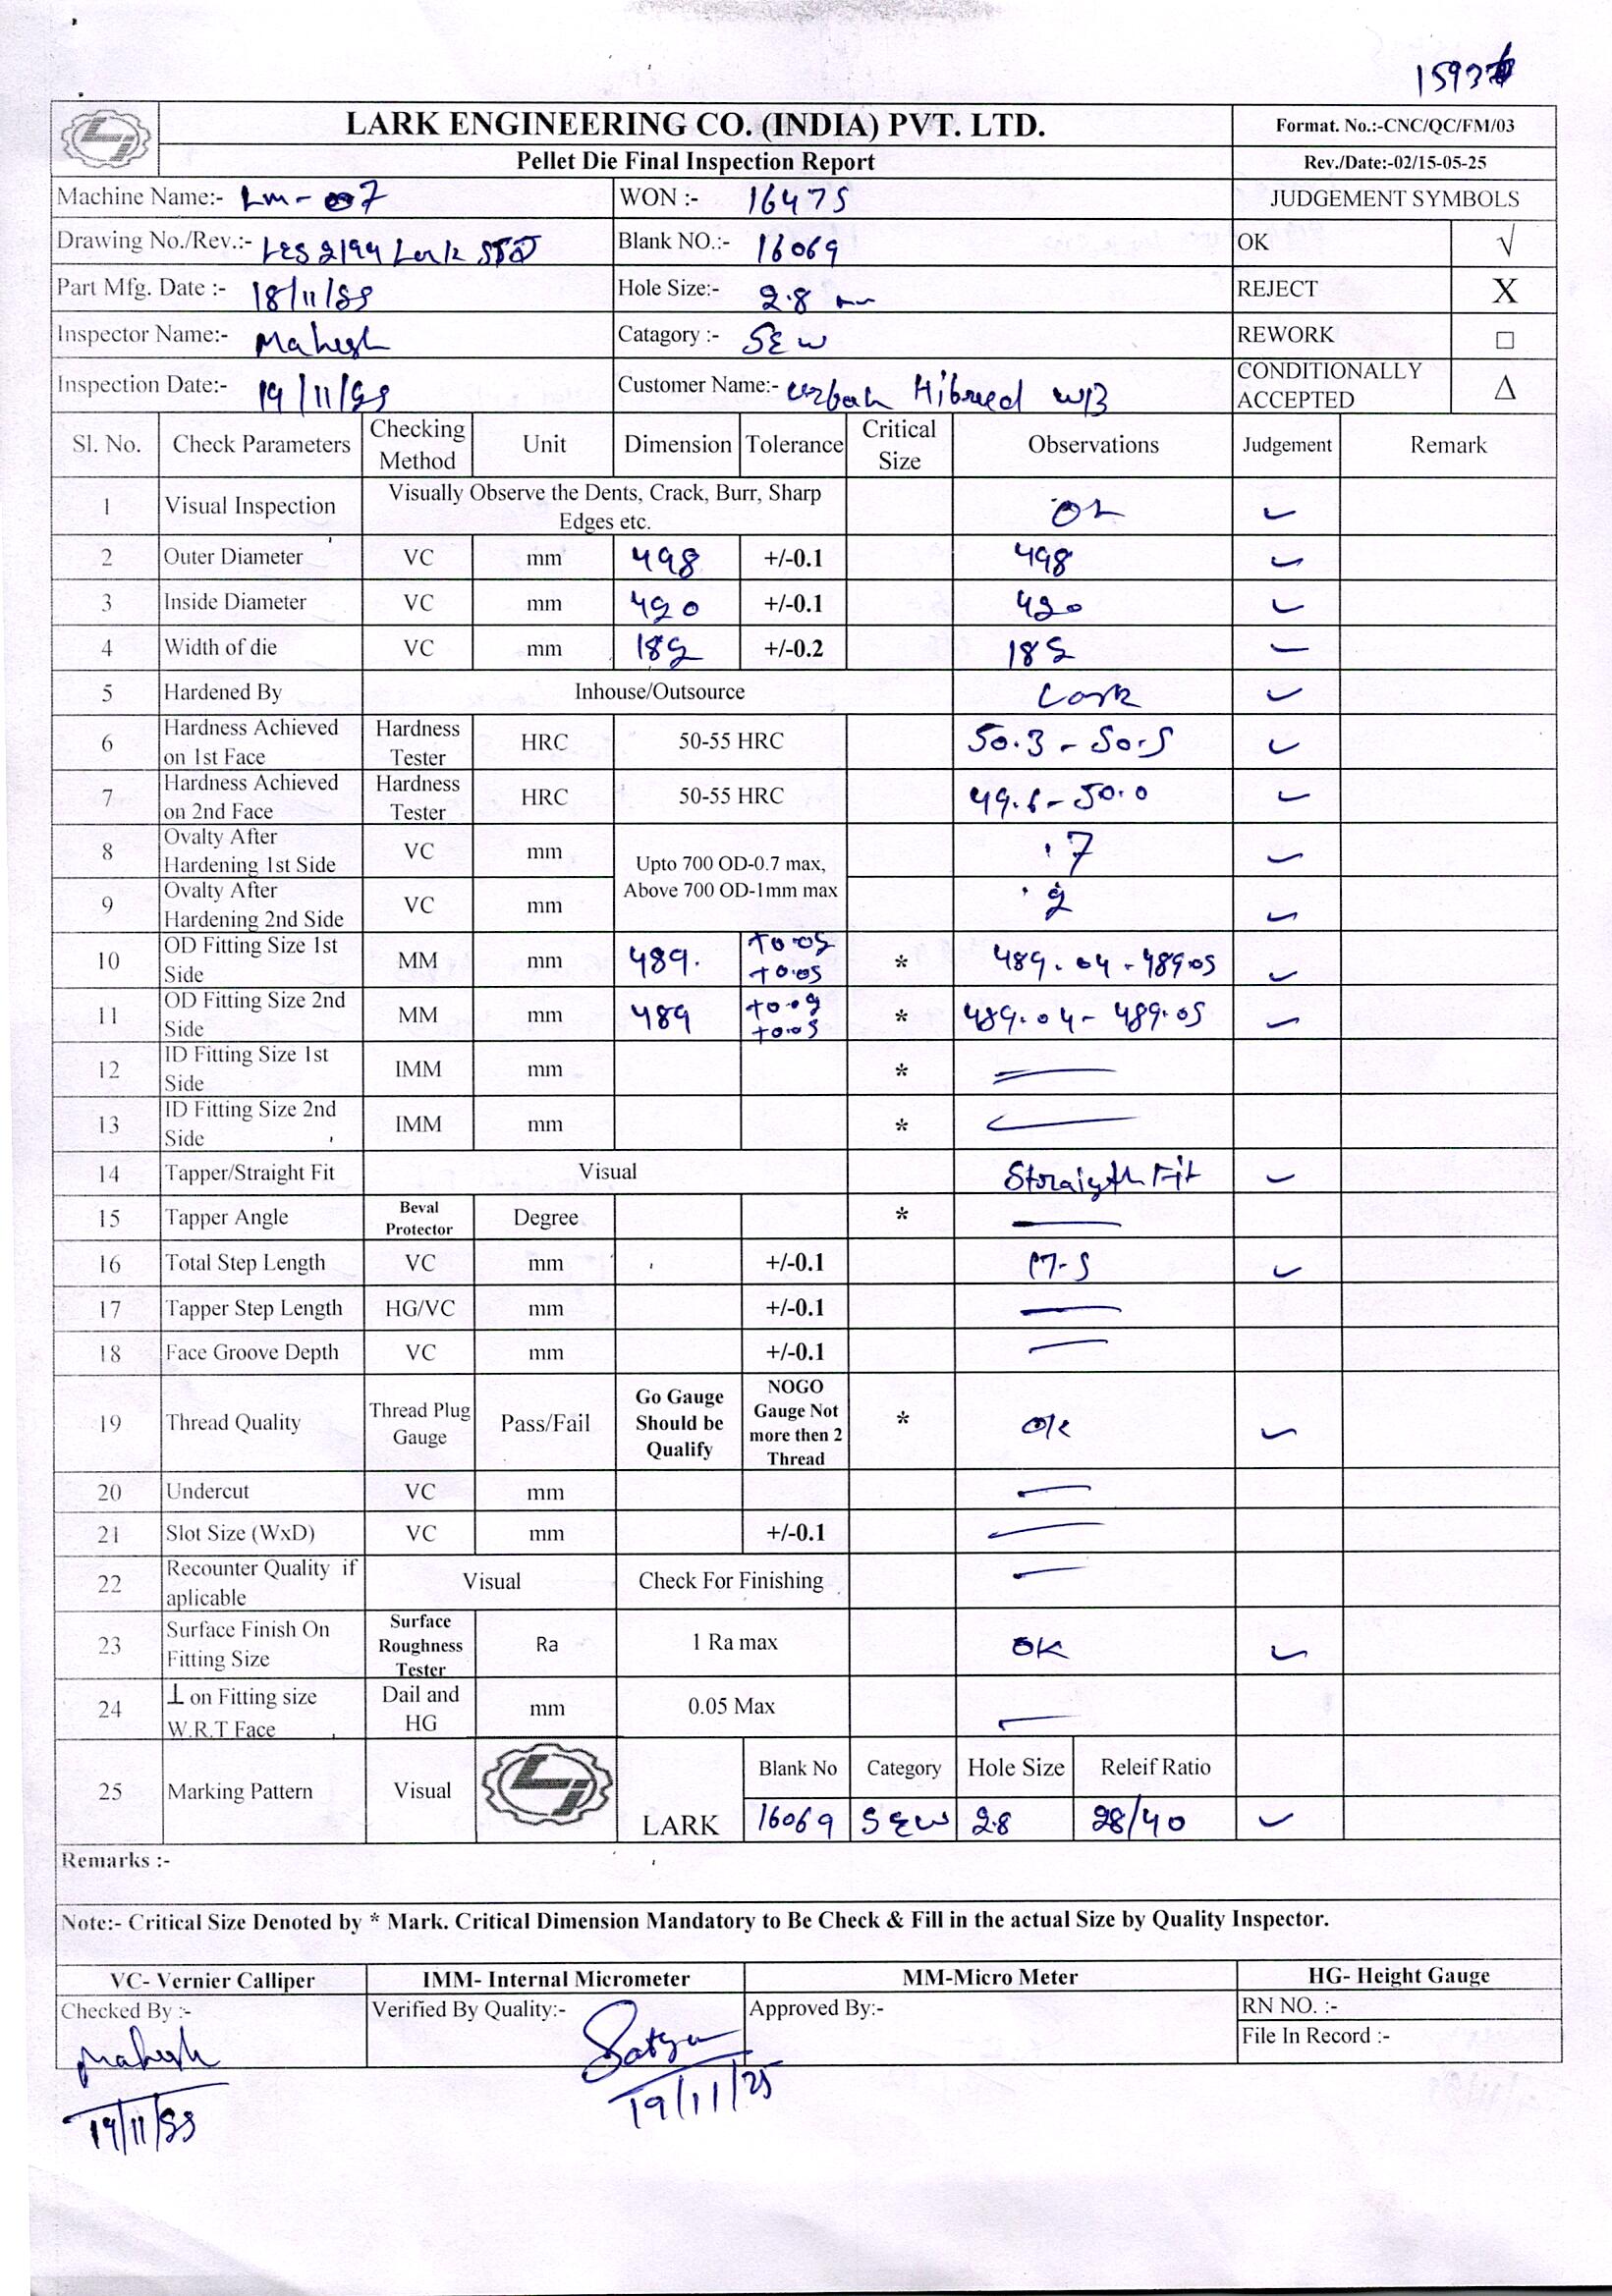 LARK ENGINEERING CO. (INDIA) PVT. LTD.
Format. No.:-CNC/QC/FM/03
Pellet Die Final Inspection Report
Rev./Date:-02/15-05-25
Machine Name:- Lm-007 WON :- 16475 JUDGEMENT SYMBOLS
Drawing No./Rev.:- Blank NO.:- 16069 OK √
Part Mfg. Date :- 18/11/25 Hole Size:- 2.8 mm REJECT X
Inspector Name:- Mahesh Catagory :- SEW REWORK □
Inspection Date:- 19/11/25 Customer Name:- Urban Hibreed WB CONDITIONALLY ACCEPTED Δ
Sl. No. Check Parameters Checking Method Unit Dimension Tolerance Critical Size Observations Judgement Remark
1 Visual Inspection Visually Observe the Dents, Crack, Burr, Sharp Edges etc. OK ✓
2 Outer Diameter VC mm 498 +/-0.1 498 ✓
3 Inside Diameter VC mm 420 +/-0.1 420 ✓
4 Width of die VC mm 182 +/-0.2 182 ✓
5 Hardened By Inhouse/Outsource Lark ✓
6 Hardness Achieved on 1st Face Hardness Tester HRC 50-55 HRC 50.3 - 50.5 ✓
7 Hardness Achieved on 2nd Face Hardness Tester HRC 50-55 HRC 49.6 - 50.0 ✓
8 Ovalty After Hardening 1st Side VC mm Upto 700 OD-0.7 max, Above 700 OD-1mm max .7 ✓
9 Ovalty After Hardening 2nd Side VC mm .2 ✓
10 OD Fitting Size 1st Side MM mm 489. +0.02 +0.05 * 489.04 - 489.05 ✓
11 OD Fitting Size 2nd Side MM mm 489 +0.02 +0.05 * 489.04 - 489.05 ✓
12 ID Fitting Size 1st Side IMM mm * —
13 ID Fitting Size 2nd Side IMM mm * —
14 Tapper/Straight Fit Visual Straigth Fit ✓
15 Tapper Angle Beval Protector Degree * —
16 Total Step Length VC mm +/-0.1 17.5 ✓
17 Tapper Step Length HG/VC mm +/-0.1 —
18 Face Groove Depth VC mm +/-0.1 —
19 Thread Quality Thread Plug Gauge Pass/Fail Go Gauge Should be Qualify NOGO Gauge Not more then 2 Thread * OK ✓
20 Undercut VC mm —
21 Slot Size (WxD) VC mm +/-0.1 —
22 Recounter Quality if aplicable Visual Check For Finishing —
23 Surface Finish On Fitting Size Surface Roughness Tester Ra 1 Ra max OK ✓
24 ⊥ on Fitting size W.R.T Face Dail and HG mm 0.05 Max —
25 Marking Pattern Visual LARK Blank No Category Hole Size Releif Ratio
16069 SEW 2.8 28/40 ✓
Remarks :-
Note:- Critical Size Denoted by * Mark. Critical Dimension Mandatory to Be Check & Fill in the actual Size by Quality Inspector.
VC- Vernier Calliper IMM- Internal Micrometer MM-Micro Meter HG- Height Gauge
Checked By :- Verified By Quality:- Approved By:- RN NO. :-
File In Record :-
Mahesh Satya
19/11/25 19/11/25